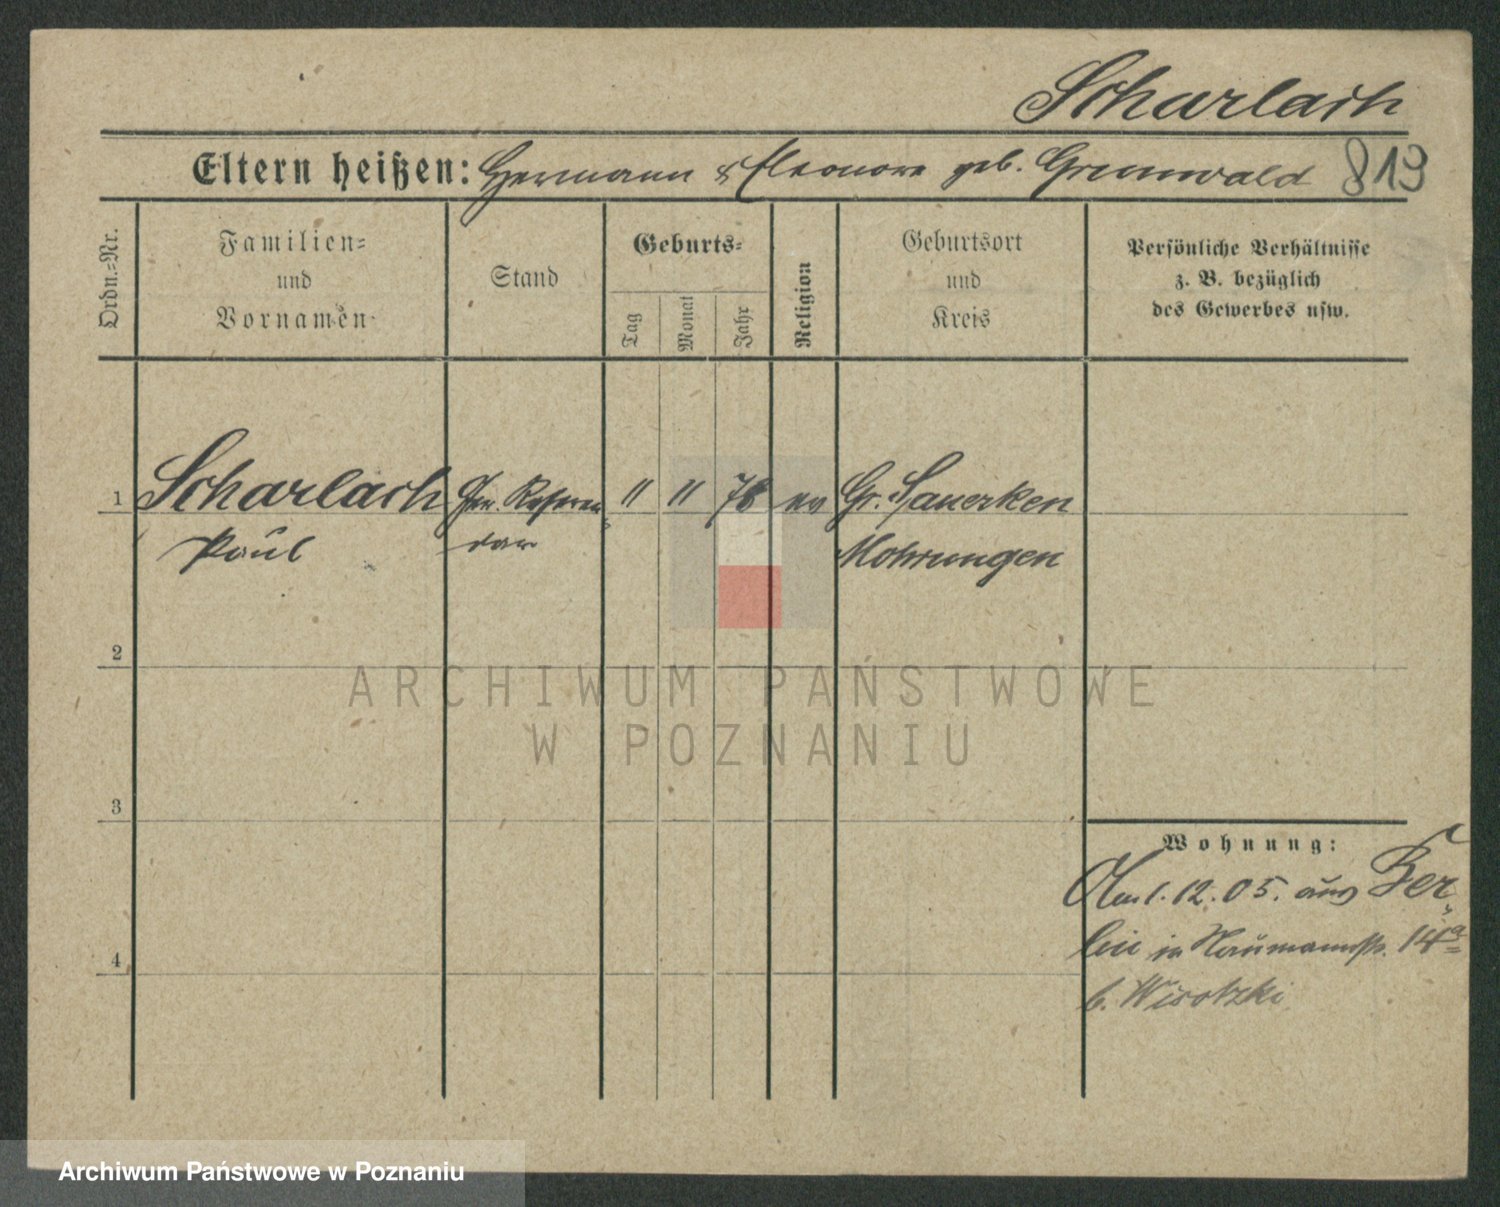 Scharlach
Eltern heißen: Hermann & Eleonore geb. Grunwald 819
Ordn.-Nr.
Familien-
und
Vornamen
Stand
Geburts-
Tag
Monat
Jahr
Religion
Geburtsort
und
Kreis
Persönliche Verhältnisse
z. B. bezüglich
des Gewerbes usw.
1 Scharlach Ger. Referen- 11 11 76 ev Gr. Sauerken
Paul dar Mohrungen
2
ARCHIWUM PAŃSTWOWE
W POZNANIU
3
Wohnung:
Am 1. 12. 05. aus Ber-
lin in Naumannstr. 14a
4
b. Wisotzki
Archiwum Państwowe w Poznaniu